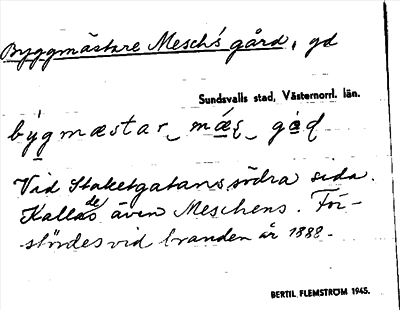 Byggmästare Mesch's gård, gd
Sundsvalls stad, Västernorrl. län.
býgmæstar‿ mǽʂ‿ gɑ̊ɖ
Vid Staketgatans södra sida.
Kallades även Meschens. För-
stördes vid branden år 1888.
BERTIL FLEMSTRÖM 1945.